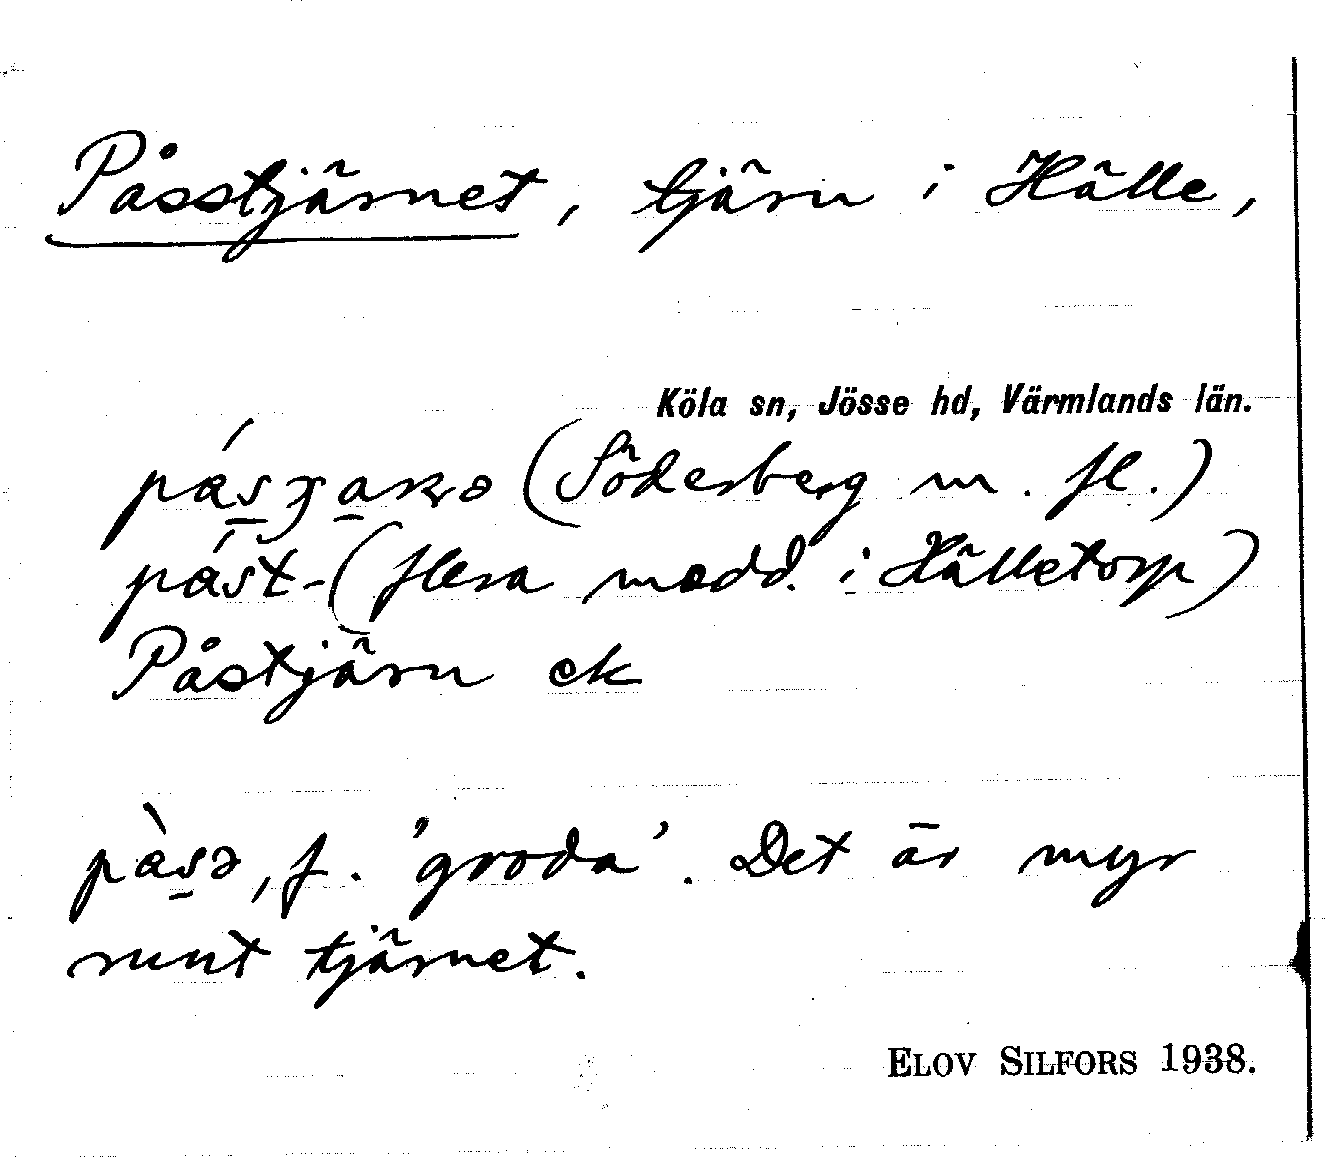 Påsstjärnet, tjärn i Hälle,
Köla sn, Jösse hd, Värmlands län.
(Söderberg m. fl.)
påst- (flera medd. i Hälletorp)
Påstjärn ek
påsə, f. 'groda'. Det är myr
runt tjärnet.
ELOV SILFORS 1938.